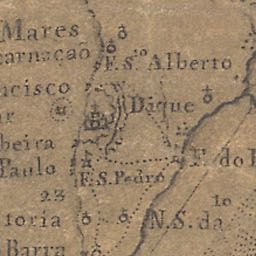 Mares
carnacao
F. S.to Alberto
ncisco
Dique
Ba
beira
Paulo
F. do
F. S. Pedro
23
10
toria
N. S. da
Barra